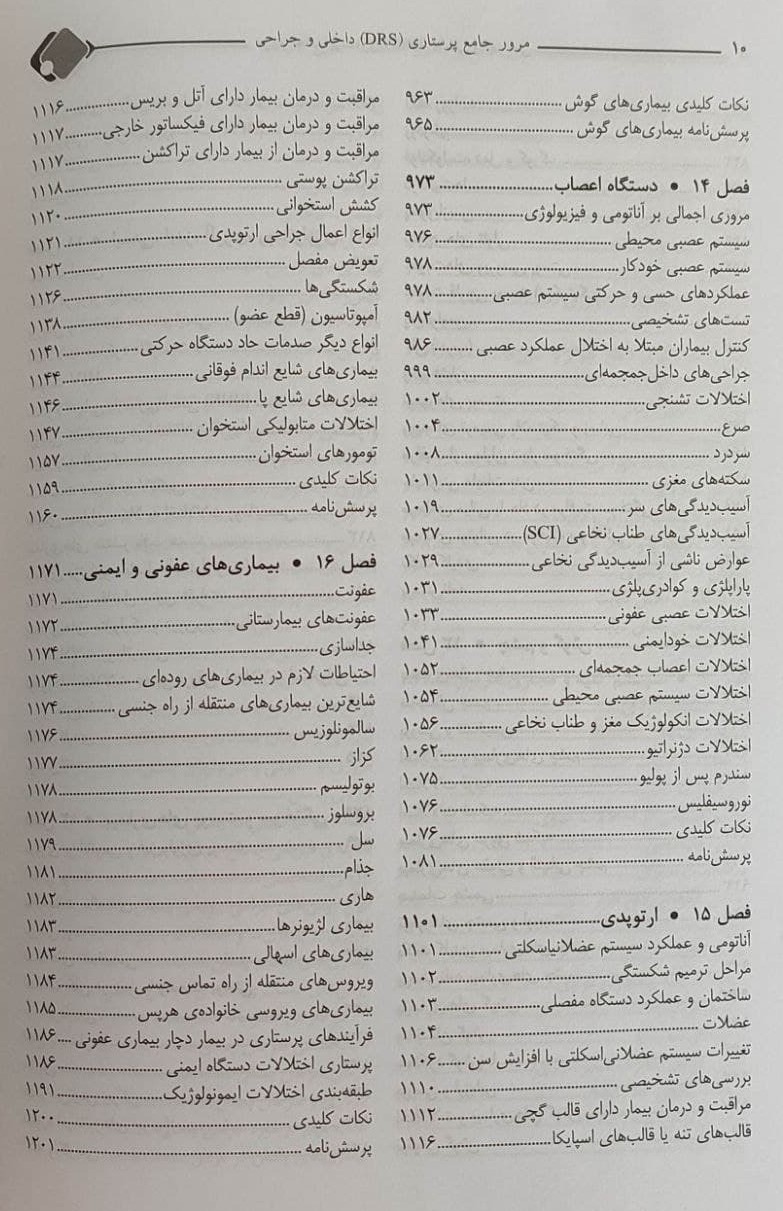 ۱۰ مرور جامع پرستاری (DRS) داخلی و جراحی
نکات کلیدی بیماری‌های گوش ۹۶۳
پرسش‌نامه بیماری‌های گوش ۹۶۵
فصل ۱۴ • دستگاه اعصاب ۹۷۳
مروری اجمالی بر آناتومی و فیزیولوژی ۹۷۳
سیستم عصبی محیطی ۹۷۶
سیستم عصبی خودکار ۹۷۸
عملکردهای حسی و حرکتی سیستم عصبی ۹۷۸
تست‌های تشخیصی ۹۸۲
کنترل بیماران مبتلا به اختلال عملکرد عصبی ۹۸۶
جراحی‌های داخل‌جمجمه‌ای ۹۹۹
اختلالات تشنجی ۱۰۰۲
صرع ۱۰۰۴
سردرد ۱۰۰۸
سکته‌های مغزی ۱۰۱۱
آسیب‌دیدگی‌های سر ۱۰۱۹
آسیب‌دیدگی‌های طناب نخاعی (SCI) ۱۰۲۷
عوارض ناشی از آسیب‌دیدگی نخاعی ۱۰۲۹
پاراپلژی و کوادری‌پلژی ۱۰۳۱
اختلالات عصبی عفونی ۱۰۳۳
اختلالات خودایمنی ۱۰۴۱
اختلالات اعصاب جمجمه‌ای ۱۰۵۲
اختلالات سیستم عصبی محیطی ۱۰۵۴
اختلالات انکولوژیک مغز و طناب نخاعی ۱۰۵۶
اختلالات دژنراتیو ۱۰۶۲
سندرم پس از پولیو ۱۰۷۵
نوروسیفلیس ۱۰۷۶
نکات کلیدی ۱۰۷۶
پرسش‌نامه ۱۰۸۱
فصل ۱۵ • ارتوپدی ۱۱۰۱
آناتومی و عملکرد سیستم عضلانی‌اسکلتی ۱۱۰۱
مراحل ترمیم شکستگی ۱۱۰۲
ساختمان و عملکرد دستگاه مفصلی ۱۱۰۳
عضلات ۱۱۰۴
تغییرات سیستم عضلانی‌اسکلتی با افزایش سن ۱۱۰۶
بررسی‌های تشخیصی ۱۱۱۰
مراقبت و درمان بیمار دارای قالب گچی ۱۱۱۲
قالب‌های تنه یا قالب‌های اسپایکا ۱۱۱۶
مراقبت و درمان بیمار دارای آتل و بریس ۱۱۱۶
مراقبت و درمان بیمار دارای فیکساتور خارجی ۱۱۱۷
مراقبت و درمان از بیمار دارای تراکشن ۱۱۱۷
تراکشن پوستی ۱۱۱۸
کشش استخوانی ۱۱۲۰
انواع اعمال جراحی ارتوپدی ۱۱۲۱
تعویض مفصل ۱۱۲۲
شکستگی‌ها ۱۱۲۶
آمپوتاسیون (قطع عضو) ۱۱۳۸
انواع دیگر صدمات حاد دستگاه حرکتی ۱۱۴۱
بیماری‌های شایع اندام فوقانی ۱۱۴۴
بیماری‌های شایع پا ۱۱۴۶
اختلالات متابولیکی استخوان ۱۱۴۷
تومورهای استخوان ۱۱۵۷
نکات کلیدی ۱۱۵۹
پرسش‌نامه ۱۱۶۰
فصل ۱۶ • بیماری‌های عفونی و ایمنی ۱۱۷۱
عفونت ۱۱۷۱
عفونت‌های بیمارستانی ۱۱۷۲
جداسازی ۱۱۷۴
احتیاطات لازم در بیماری‌های روده‌ای ۱۱۷۴
شایع‌ترین بیماری‌های منتقله از راه جنسی ۱۱۷۴
سالمونلوزیس ۱۱۷۶
کزاز ۱۱۷۷
بوتولیسم ۱۱۷۸
بروسلوز ۱۱۷۸
سل ۱۱۷۹
جذام ۱۱۸۱
هاری ۱۱۸۲
بیماری لژیونرها ۱۱۸۳
بیماری‌های اسهالی ۱۱۸۳
ویروس‌های منتقله از راه تماس جنسی ۱۱۸۴
بیماری‌های ویروسی خانواده‌ی هرپس ۱۱۸۵
فرآیندهای پرستاری در بیمار دچار بیماری عفونی ۱۱۸۶
پرستاری اختلالات دستگاه ایمنی ۱۱۸۶
طبقه‌بندی اختلالات ایمونولوژیک ۱۱۹۱
نکات کلیدی ۱۲۰۰
پرسش‌نامه ۱۲۰۱